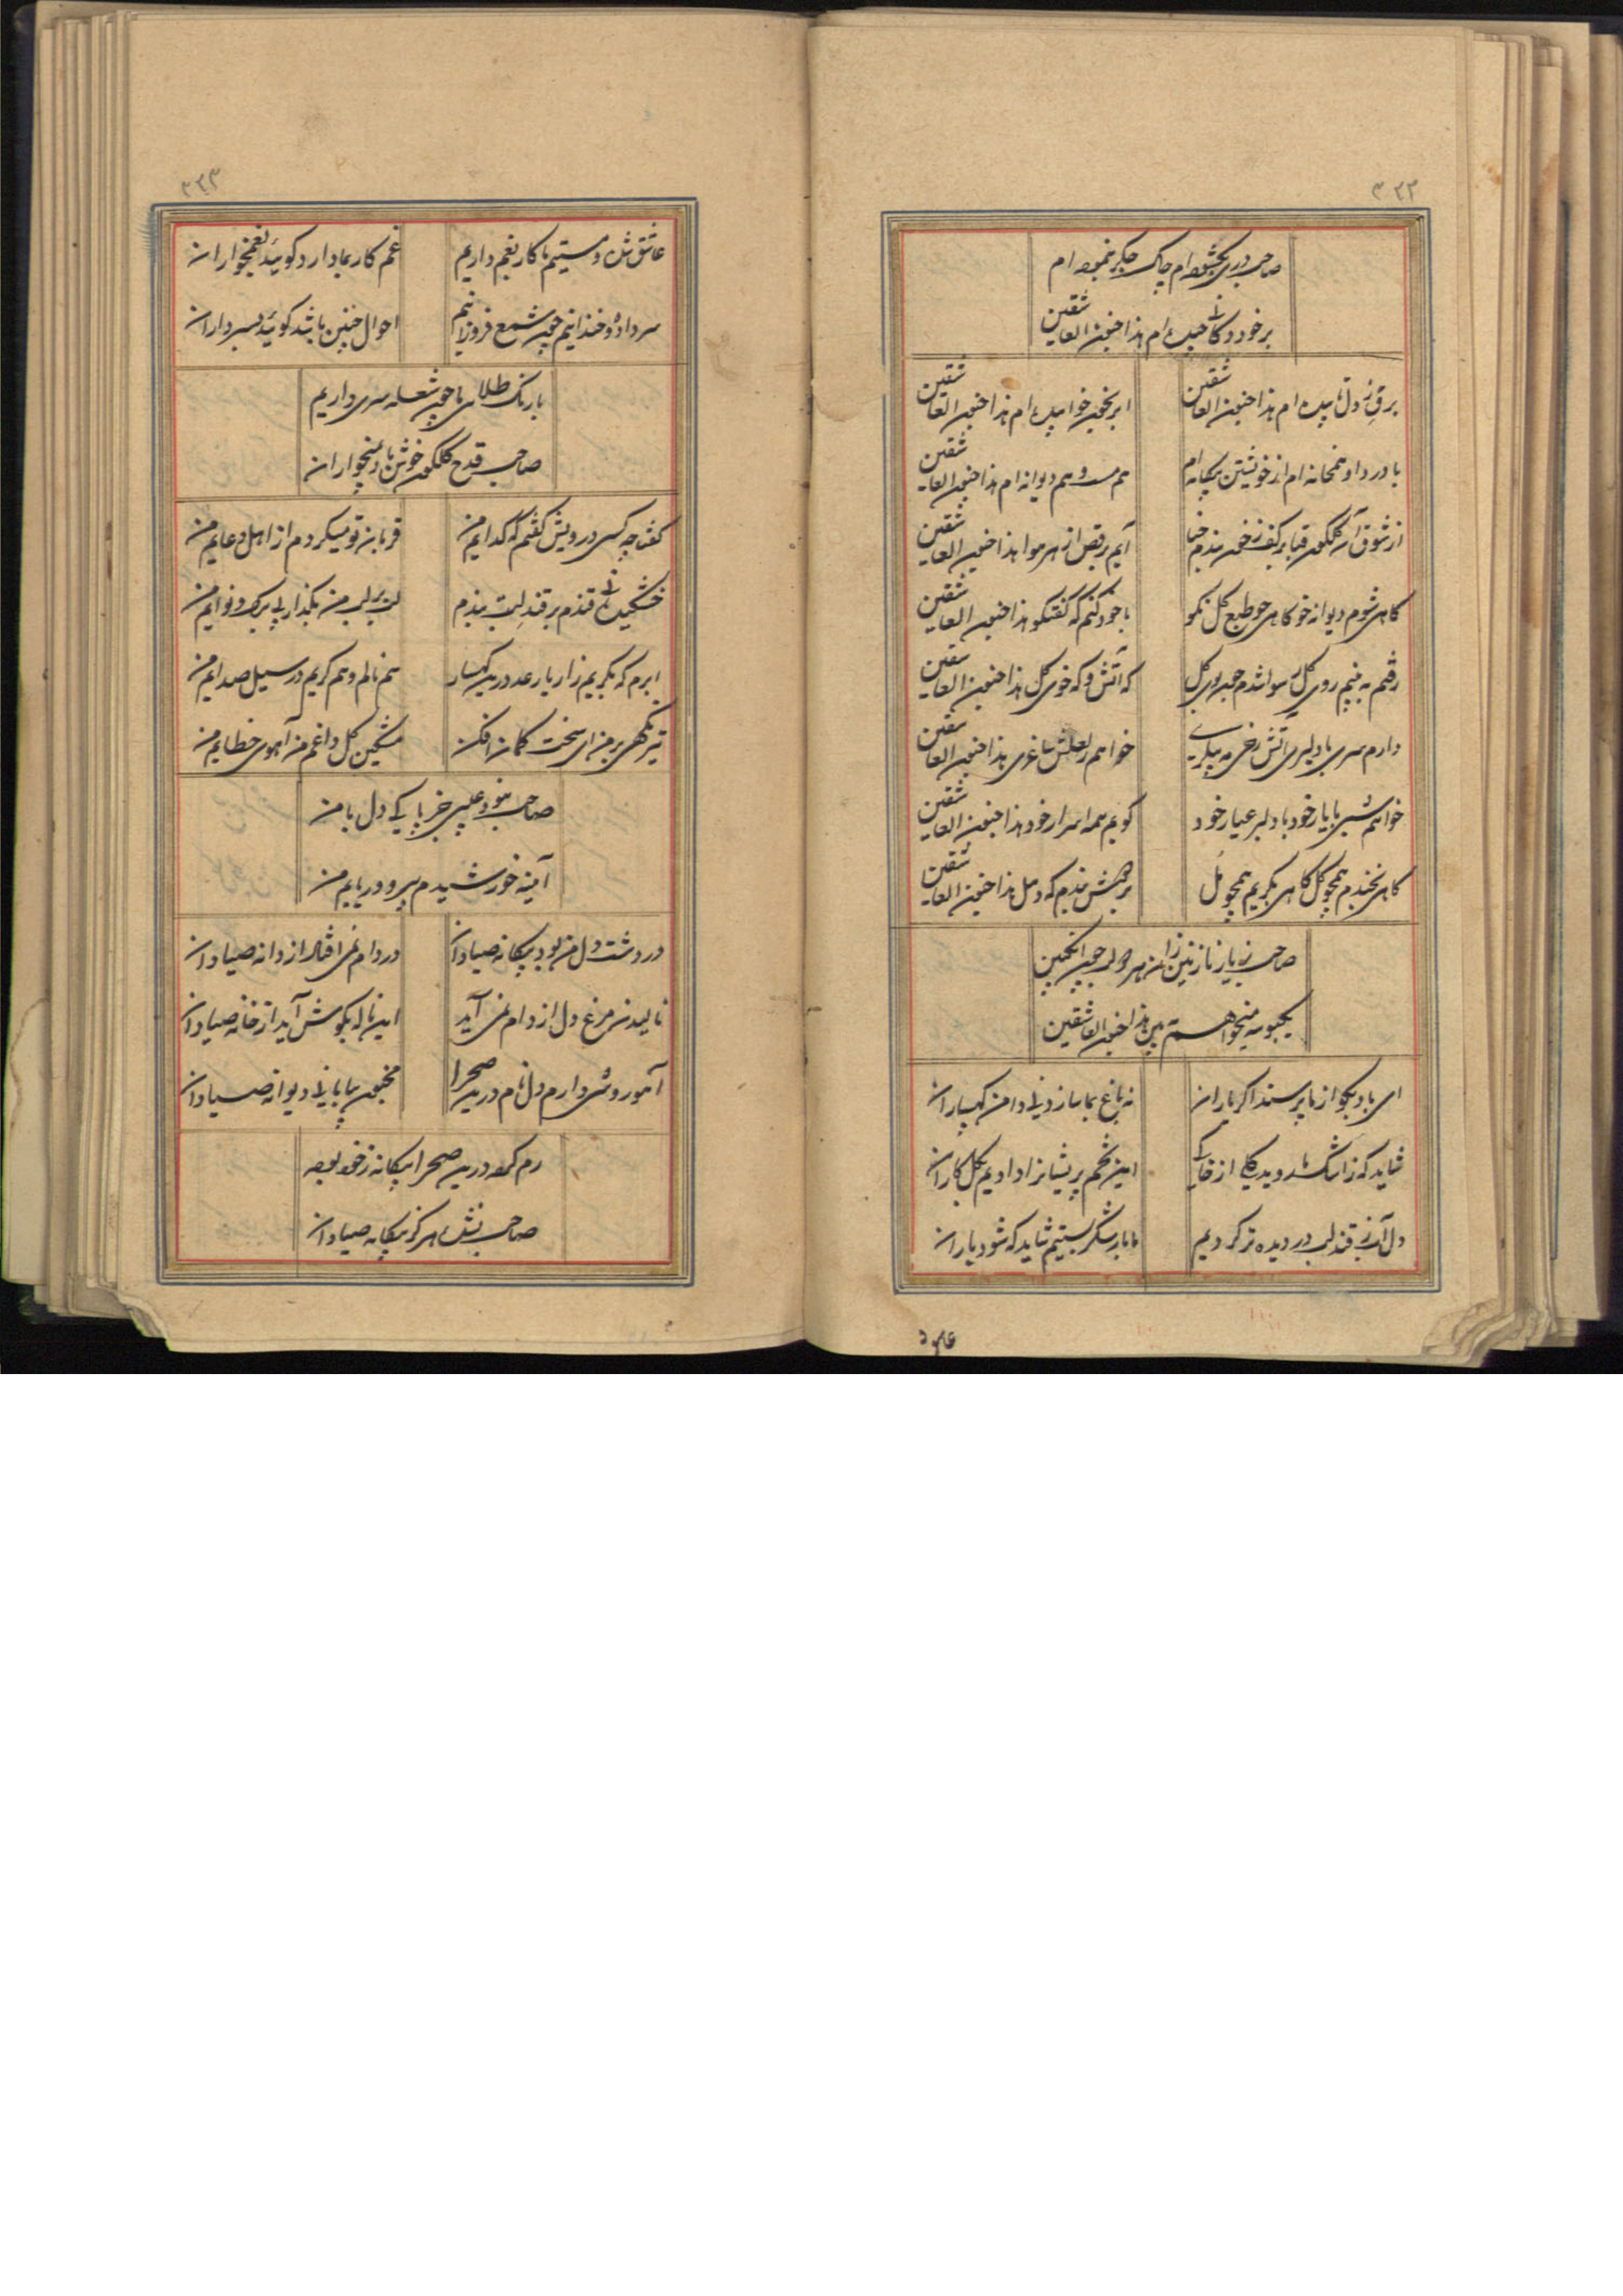 ۳۳۲
صاحب دری بگشوده‌ام چاک جگر بنموده‌ام
بر خود دکانی چیده‌ام هذا جنون العاشقین
برقی ز دل تابیده‌ام هذا جنون العاشقین
ابر بخون خوابیده‌ام هذا جنون العاشقین
با درد او همخانه‌ام از خویشتن بیگانه‌ام
هم مست و هم دیوانه‌ام هذا جنون العاشقین
از شوق آن گلگون قبا بر کف ز خون بندم حنا
آیم برقص از هر هوا هذا جنون العاشقین
گاهی شوم دیوانه خو گاهی چو طبع گل نکو
با خود کنم گه گفتگو هذا جنون العاشقین
رفتم به بینم روی گل رسوا شدم چون بوی گل
که آتش و که خوی گل هذا جنون العاشقین
دارم سری با دلبری آتش رخی مه پیکری
خواهم ز لعلش ساغری هذا جنون العاشقین
خواهم شبی با یار خود با دلبر عیار خود
گویم همه اسرار خود هذا جنون العاشقین
گاهی بخندم همچو گل گاهی بگریم همچو مل
هذا جنون العاشقین
صاحب ز یار نازنین زان چون انگبین
یکبوسه میخواهم همین هذا جنون العاشقین
ای باد بگو از ما پرسند اگر یاران
نه باغ بما سازد نی دامن کهساران
شاید که ز اشک ما روید گلی از خاکی
این تخم پریشانرا دادیم بگل کاران
دل آب ز قند لب در دیده تر کردیم
ما بار شکر بستیم شاید که شود باران
عاشق
۳۳۳
عاشق شده و مستیم ما کار بغم داریم
غم کار بما دارد گوئید بغمخواران
سر داده و خندانیم چون شمع فروزانیم
احوال چنین باشد گوئید بسرداران
با رنگ طلای ما چون شعله سری داریم
صاحب قدح گلگون خوش باد بمیخواران
گفتا چه کسی درویش گفتم که گدایم من
قربان تو میگردم از اهل دعایم من
خشکیده نی قندم بر قند لبت بندم
لب بر لب من بگذار بی برگ و نوایم من
ابرم که بگریم زار یا رعد درین کهسار
هم نالم و هم گریم در سیل صدایم من
تیر نگهی بر من ای سخت کمان افکن
مشکین گل داغم من آهوی خطایم من
صاحب نبود عیبی جز پاکی دل با من
آئینه خورشیدم بیرو و ریایم من
در دشت دل من بود بیگانه صیادان
در دام نمی‌افتاد از دانه صیادان
نالیدن مرغ دل از دام نمی‌آید
این ناله بگوش آید از خانه صیادان
آهو روشی دارم دل نام درین صحرا
مجنون بیابانی دیوانه صیادان
رم کرده درین صحرا بیگانه ز خود بوده
صاحب نشد هرگز بیگانه صیادان